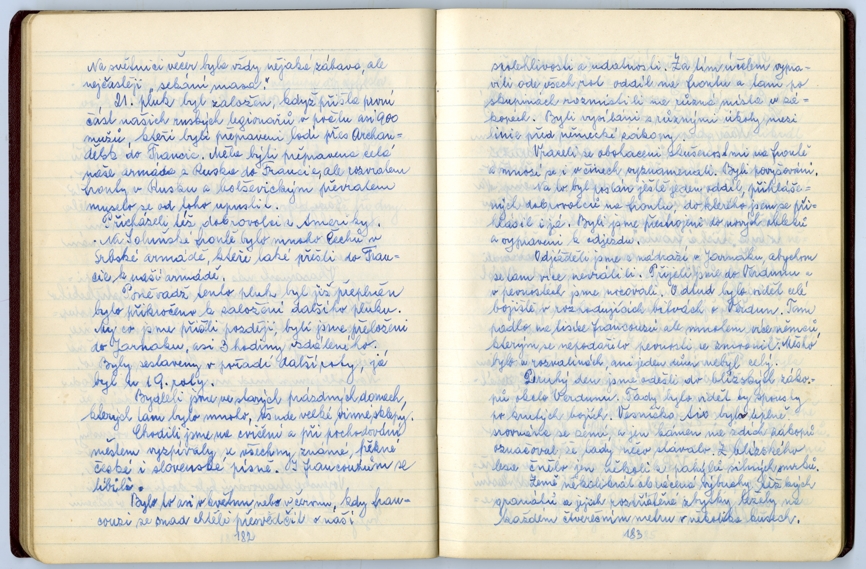 Na světnici večer byla vždy nějaká zábava, ale
nejčastěji „sekání masa."
21. pluk byl založen, když přišla první
část našich ruských legionářů v počtu asi 900
mužů, kteří byli přepraveni lodí přes Archan-
delsk do Francie. Měla býti přepravena celá
naše armáda z Ruska do Francie, ale rozvratem
fronty v Rusku a bolševickým převratem
muselo se od toho upustit.
Přicházeli též dobrovolci z Ameriky.
Na Solunské frontě bylo mnoho Čechů v
Srbské armádě, kteří také přišli do Fran-
cie k naší armádě.
Poněvadž tento pluk byl již přeplněn
bylo přikročeno k založení dalšího pluku.
My co jsme přišli později, byli jsme přeloženi
do Jarnaku, asi 3 hodiny vzdáleného.
Byly sestaveny v pořadí další roty, já
byl u 19. roty.
Bydleli jsme ve starých prázdných domech,
kterých tam bylo mnoho, všude velké vinné sklepy.
Chodili jsme na cvičení a při pochodování
městem vyzpívaly se všechny známé, pěkné
české i slovenské písně. Francouzům se
líbily.
Bylo to asi v květnu nebo v červnu, kdy fran-
couzi se snad chtěli přesvědčit o naší
182
spolehlivosti a udatnosti. Za tím účelem vypra-
vili ode všech rot oddíl na frontu a tam po
skupinách rozmístili na různá místa v zá-
kopech. Byli vysíláni s různými úkoly mezi
linie před německé zákopy.
Vraceli se obohaceni zkušenostmi na frontě
a mnozí se i v činech vyznamenali. Byli povyšováni.
Na to byl poslán ještě jeden oddíl, přihláše-
ných dobrovolců na frontu, do kterého jsem se při-
hlásil i já. Byli jsme přestrojeni do nových obleků
a vypraveni k odjezdu.
Odjížděli jsme z nádraží v Jarnaku, abychom
se tam více nevrátili. Přijeli jsme do Verdunu
v pevnostech jsme nocovali. Odtud bylo vidět celé
bojiště, v rozhodujících bitvách o Verdun. Tam
padlo na tisíce francouzů ale mnohem více němců,
kterým se nepodařilo pevnosti se zmocnit. Město
bylo v rozvalinách, ani jeden dům nebyl celý.
Druhý den jsme odešli do blízkých záko-
pů okolo Verdunu. Tady bylo vidět ty spousty
po krutých bojích. Vesnička byla úplně
srovnána se zemí, a jen kámen ze zdích zákopů
označoval že tady něco stávalo. Z blízkého
lesa čnělo jen několik pahýlů silných stromů.
Země několikrát obrácená výbuchy těžkých
granátů a jejich roztříštěné zbytky ležely na
každém čtverečním metru v několika kusech.
183